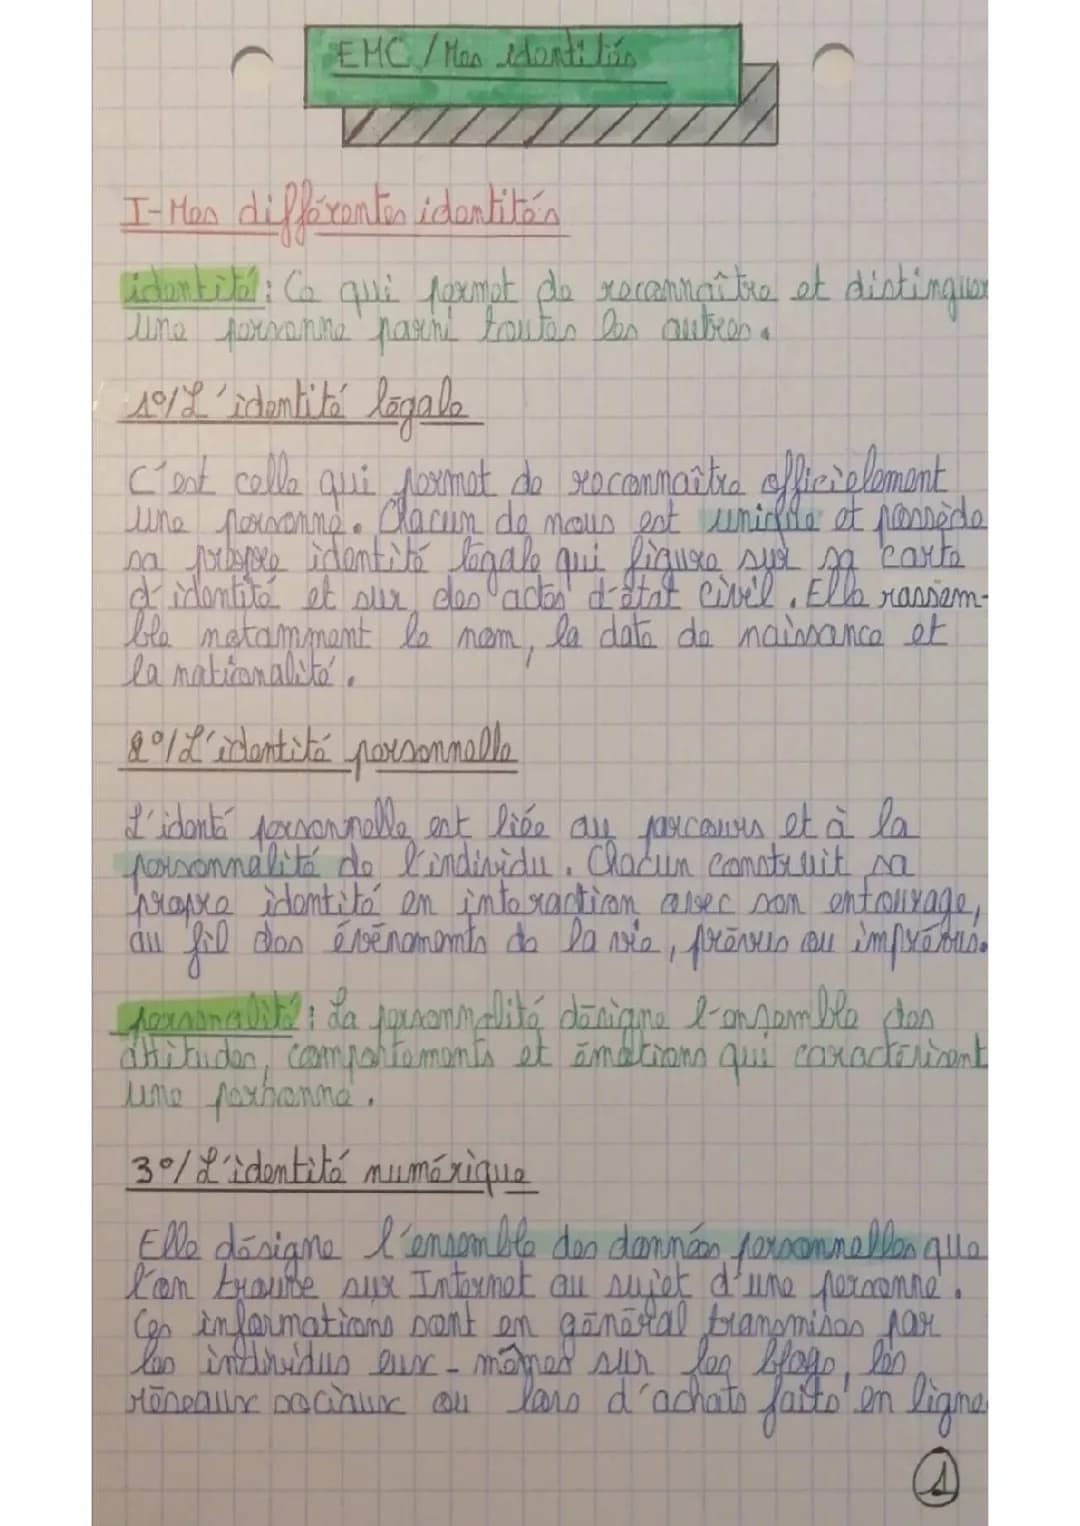 EMC / Mes identités
I-Mes différentes identités
identité : Ce qui permet de reconnaître et distinguer
une personne parmi toutes les autres.
1°/ L'identité légale
C'est celle qui permet de reconnaître officielement
une personne. Chacun de nous est unique et possède
sa propre identité légale qui figure sur sa carte
d'identité et sur des actes d'état civil. Elle rassem-
ble notamment le nom, la date de naissance et
la nationalité.
2°/ L'identité personnelle
L'identé personnelle est liée au parcours et à la
personnalité de l'individu. Chacun construit sa
propre identité en interaction avec son entourage,
au fil des évènements de la vie, prévus ou imprévus.
personalité : La personnalité désigne l'ensemble des
attitudes, comportements et émotions qui caractérisent
une personne.
3°/ L'identité numérique
Elle désigne l'ensemble des données personnelles que
l'on trouve sur Internet au sujet d'une personne.
Ces informations sont en général transmises par
les individus eux-mêmes sur les blogs, les
réseaux sociaux ou lors d'achats faits en ligne
1